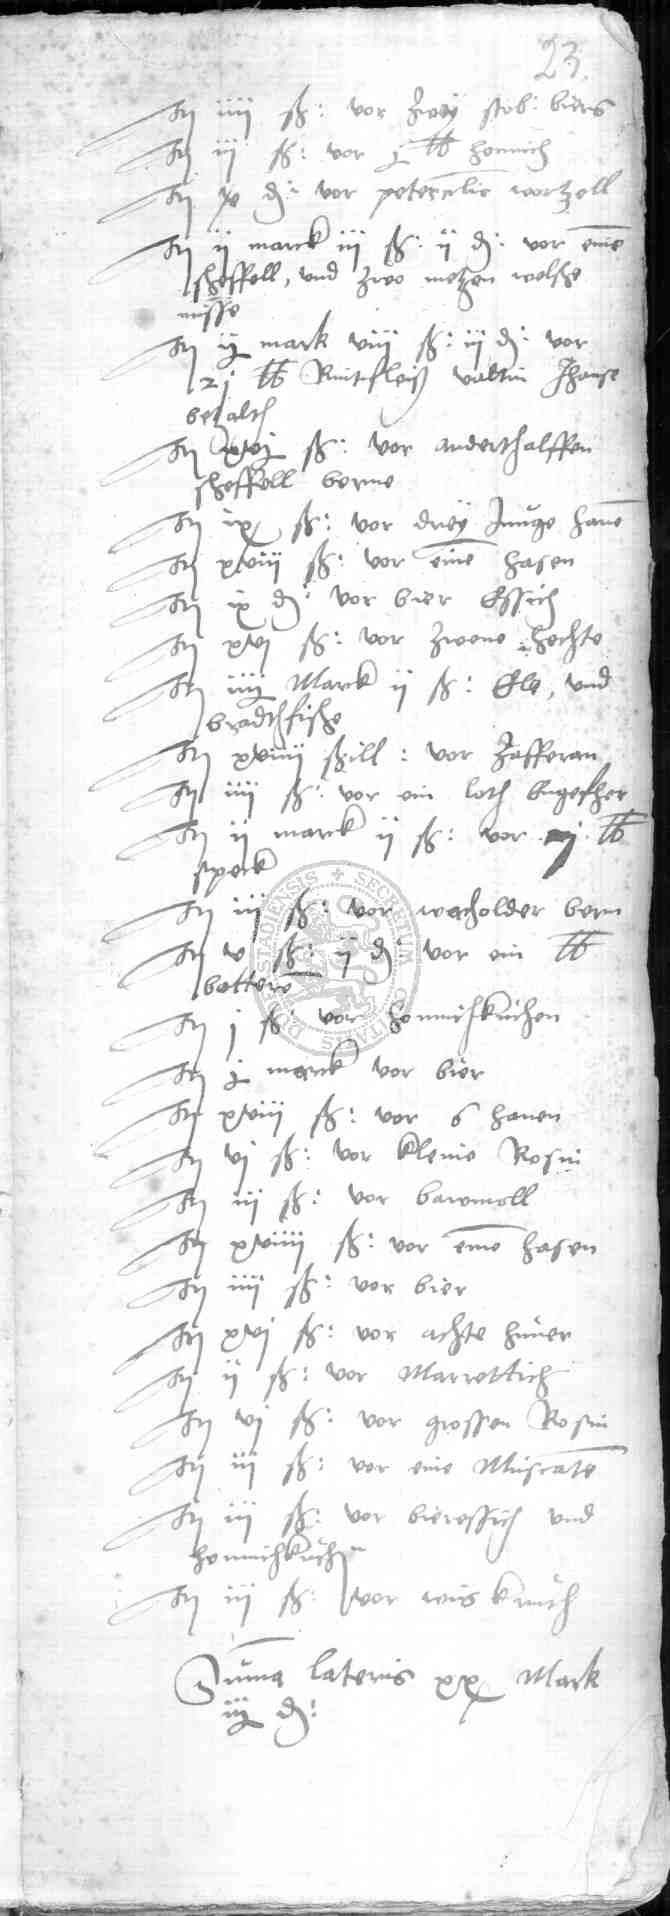 23.
It iiij ß: vor zwey stob: biers
It iij ß: vor j lb honnich
It x d: vor petercilie wortzell
It ij marck iij ß: ij d: vor eine
scheffell, und zwo metzen welsche
nüsse
It ij mark viij ß: iij d: vor
21 lb Rintfleisch valtin
betzalth
It xvj ß: vor anderthalffen
scheffell berne
It ix ß: vor drey Junge hane
It xviij ß: vor eine hasen
It ix d: vor bier Essich
It xvj ß: vor zwene hechte
It iiij Marck ij ß: Ele, und
bradtfische
It xviiij ßill: vor Zafferan
It iiij ß: vor ein loth
It ij marck ij ß: vor 7 lb
speck
It iij ß: vor wacholder bern
It v ß: ij d: vor ein lb
botterr
It j ß vor honnichkuchen
It j marck vor bier
It xviij ß: vor 6 hanen
It vj ß: vor kleine Rosin
It iij ß: vor bawmoll
It xviiij ß: vor eine hasen
It iiij ß: vor bier
It xvj ß: vor achte hüner
It ij ß: vor Marrettich
It vj ß: vor grossen Rosin
It iij ß: vor eine Muscate
It iij ß: vor bieressich und
honnichkuch
It iij ß: vor
Suma lateris xx Mark
iij d:
SECRETUM CIVITATIS